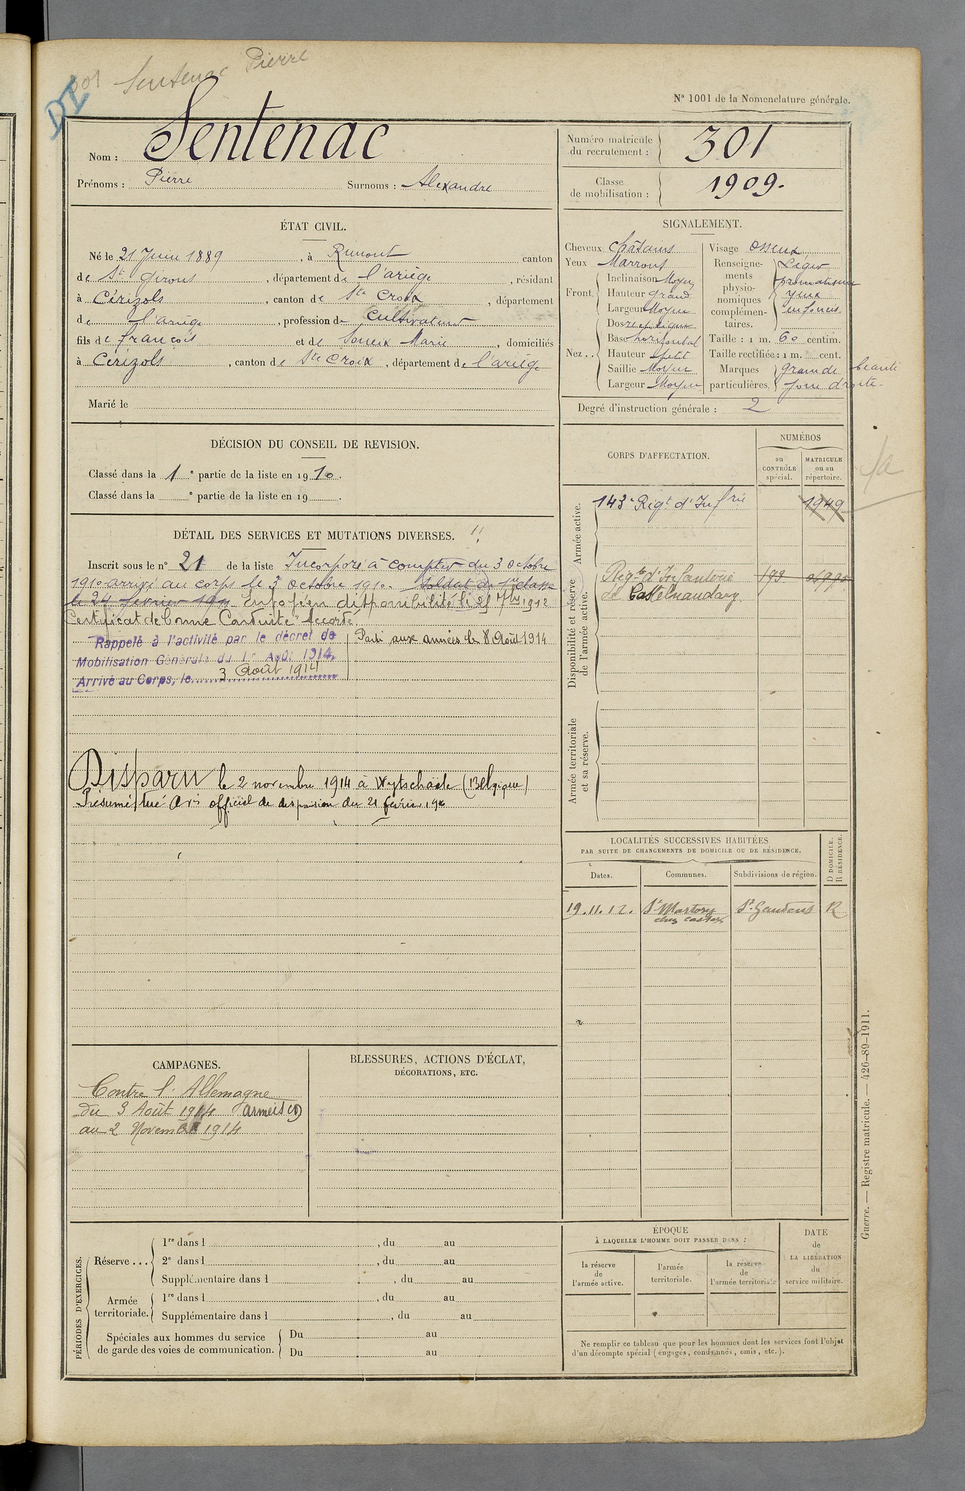 Sentenac Pierre
N° 1001 de la Nomenclature générale.
Nom : Sentenac
Prénoms : Pierre Surnoms : Alexandre
Numéro matricule du recrutement : 301
Classe de mobilisation : 1909.
ÉTAT CIVIL.
Né le 21 Juin 1889, à Rimont canton
de St Girons, département de l'ariège, résidant
à Cérizols, canton de Ste Croix, département
de l'ariège, profession de Cultivateur
fils de françois et de Soueix Marie, domiciliés
à Cérizols, canton de Ste Croix, département de l'ariège
Marié le
SIGNALEMENT.
Cheveux Châtains
Yeux Marrons
Front. Inclinaison Moyen
Hauteur grand
Largeur Moyen
Nez.. Dos
Base horizontal
Hauteur petit
Saillie Moyen
Largeur Moyen
Visage osseux
Renseignements physionomiques complémentaires.
yeux
enfoncés
Taille : 1 m. 60 centim.
Taille rectifiée : 1 m. cent.
Marques particulières. grain de beauté
joue droite.
Degré d'instruction générale : 2
DÉCISION DU CONSEIL DE REVISION.
Classé dans la 1e partie de la liste en 1910.
Classé dans la e partie de la liste en 19 .
DÉTAIL DES SERVICES ET MUTATIONS DIVERSES.
Inscrit sous le n° 21 de la liste Incorporé à compter du 3 octobre
1910 arrivé au corps le 3 octobre 1910. Soldat de 1e classe
le 24 février 1911 Envoyé en disponibilité le 25 7bre 1912
Certificat de bonne Conduite Accordé
Rappelé à l'activité par le décret de
Mobilisation Générale du 1er Août 1914,
Arrivé au Corps, le 3 Août 1914
Parti aux armées le 8 Août 1914
Disparu le 2 novembre 1914 à Wytschaete (Belgique)
Présumé tué Avis officiel de disparition du 21 février
CORPS D'AFFECTATION.
NUMÉROS
au CONTRÔLE spécial.
MATRICULE ou au répertoire.
Armée active.
143e Régt d'Infrie 1949
Disponibilité et réserve de l'armée active.
Régt d'Infanterie
de Castelnaudary
Armée territoriale et sa réserve.
LOCALITÉS SUCCESSIVES HABITÉES
PAR SUITE DE CHANGEMENTS DE DOMICILE OU DE RÉSIDENCE.
Dates. Communes. Subdivisions de région. D DOMICILE. R RÉSIDENCE.
19.11.12. St Martory St Gaudens R
CAMPAGNES.
Contre l'Allemagne
du 3 Août 1914
au 2 Novembre 1914
BLESSURES, ACTIONS D'ÉCLAT,
DÉCORATIONS, ETC.
PÉRIODES D'EXERCICES.
Réserve ... 1re dans l , du au
2e dans l , du au
Supplémentaire dans l , du au
Armée territoriale. 1re dans l , du au
Supplémentaire dans l , du au
Spéciales aux hommes du service de garde des voies de communication. Du au
Du au
ÉPOQUE
À LAQUELLE L'HOMME DOIT PASSER DANS :
la réserve de l'armée active.
l'armée territoriale.
la réserve de l'armée territoriale
DATE de LA LIBÉRATION du service militaire.
Ne remplir ce tableau que pour les hommes dont les services font l'objet
d'un décompte spécial (engagés, condamnés, omis, etc.).
Guerre. — Registre matricule. — 426-89-1911.